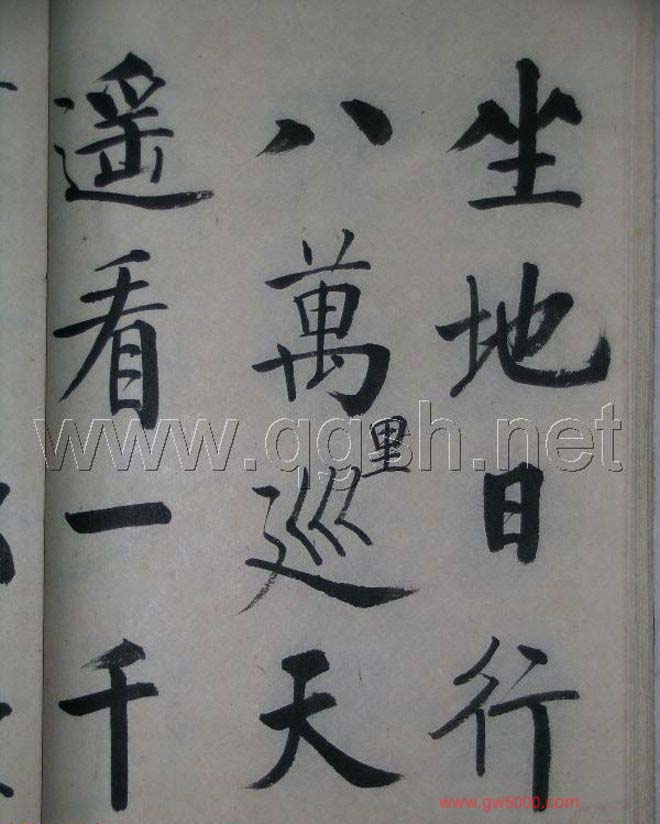 坐地日行
八萬里巡天
遥看一千
www.qgsh.net
www.gw5000.com